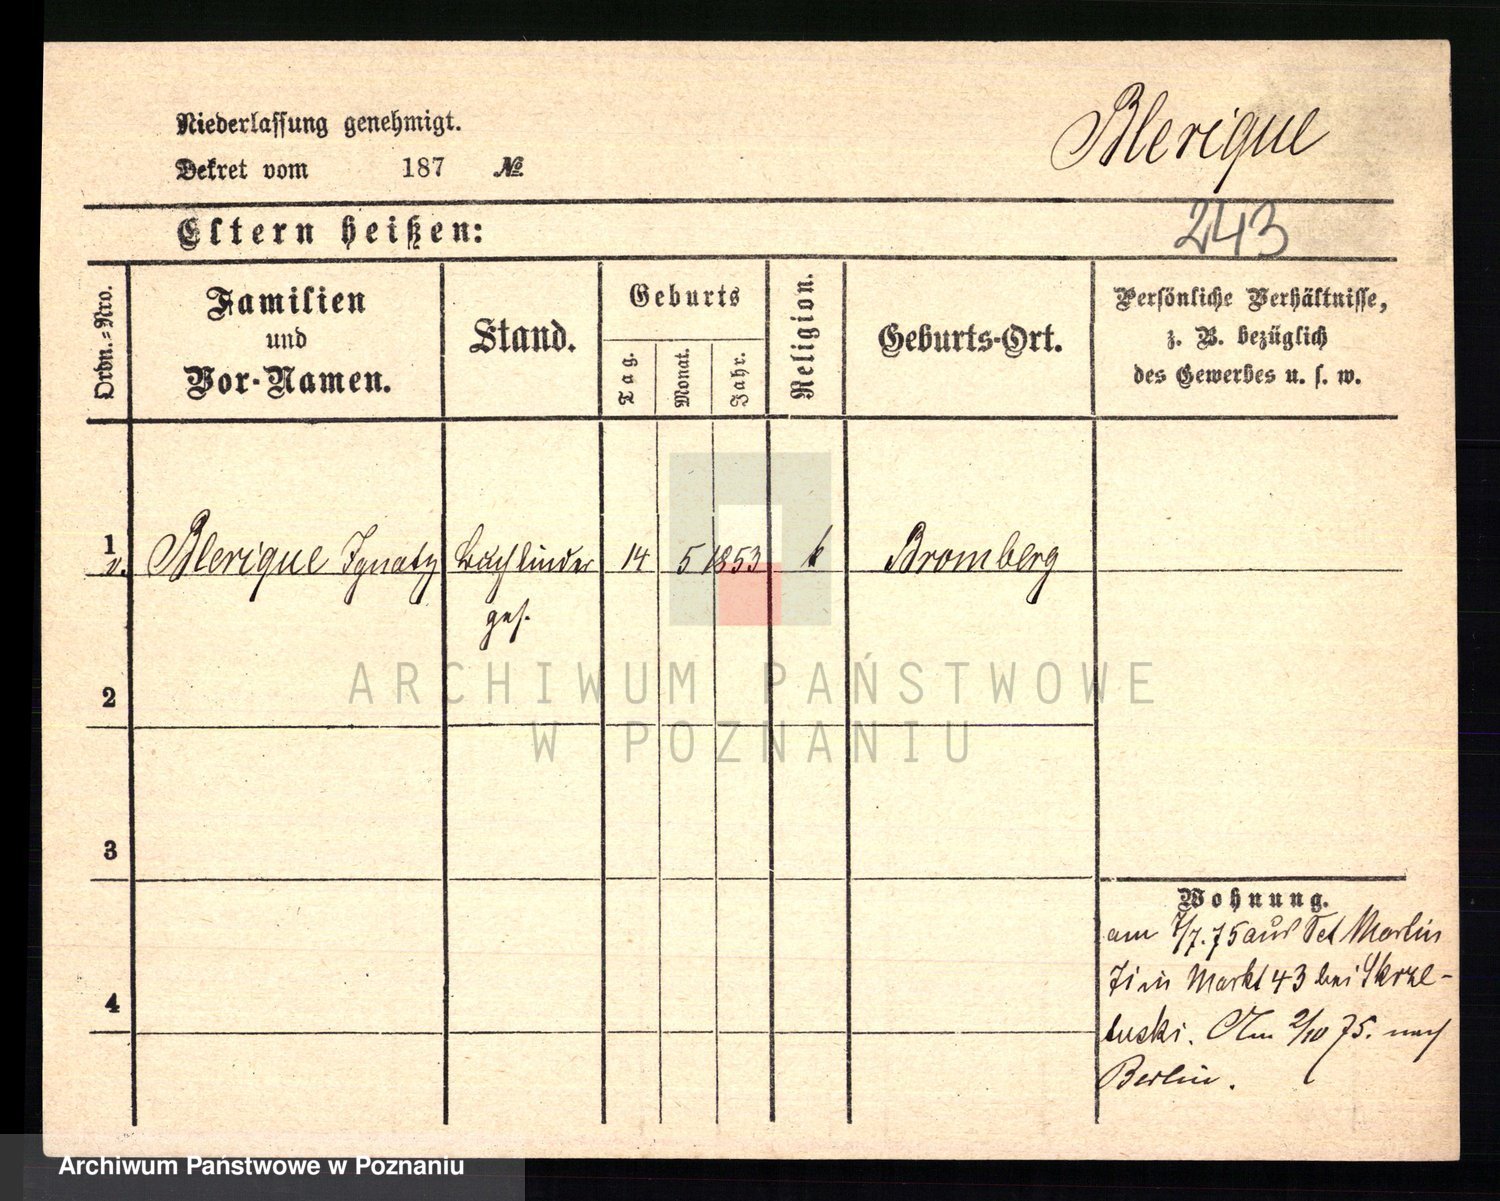 Niederlassung genehmigt.
Dekret vom 187 №
Blerique
243
Eltern heißen:
Ordn.-Nro.
Familien
und
Vor-Namen.
Stand.
Geburts
Tag.
Monat.
Jahr.
Religion.
Geburts-Ort.
Persönliche Verhältnisse,
z. B. bezüglich
des Gewerbes u. s. w.
1
v. Blerique Ignatz Buchbinder 14 5 1853 k Bromberg
ges.
2
3
4
Wohnung.
am 7/7. 75 aus Sct Martin
Markt 43 bei Skrze-
tuski. Am 2/10 75. nach
Berlin.
ARCHIWUM PAŃSTWOWE
W POZNANIU
Archiwum Państwowe w Poznaniu